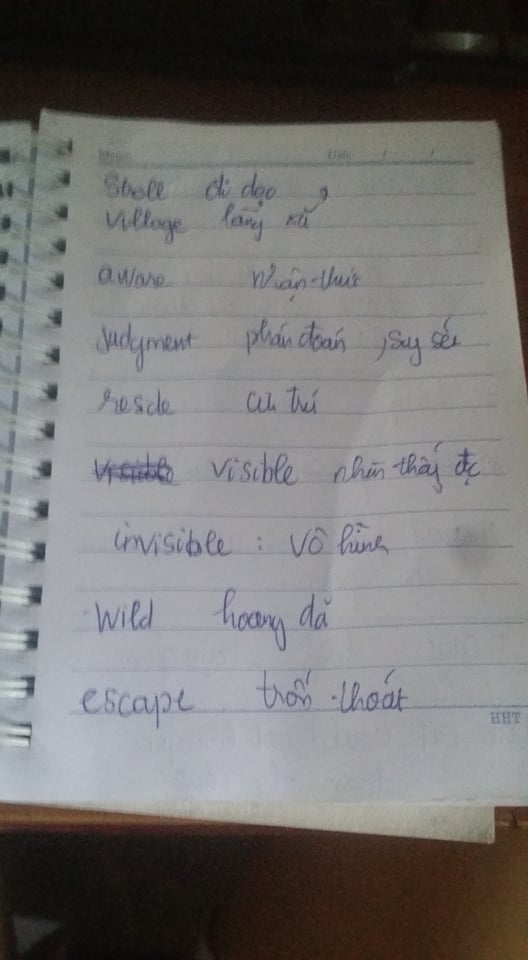 Stroll đi dạo ,
Village làng xã
aware nhận-thức
Judgment phán đoán , suy xét
reside cư trú
visible nhìn thấy đc
invisible : vô hình
Wild hoang dã
escape trốn-thoát
HHT